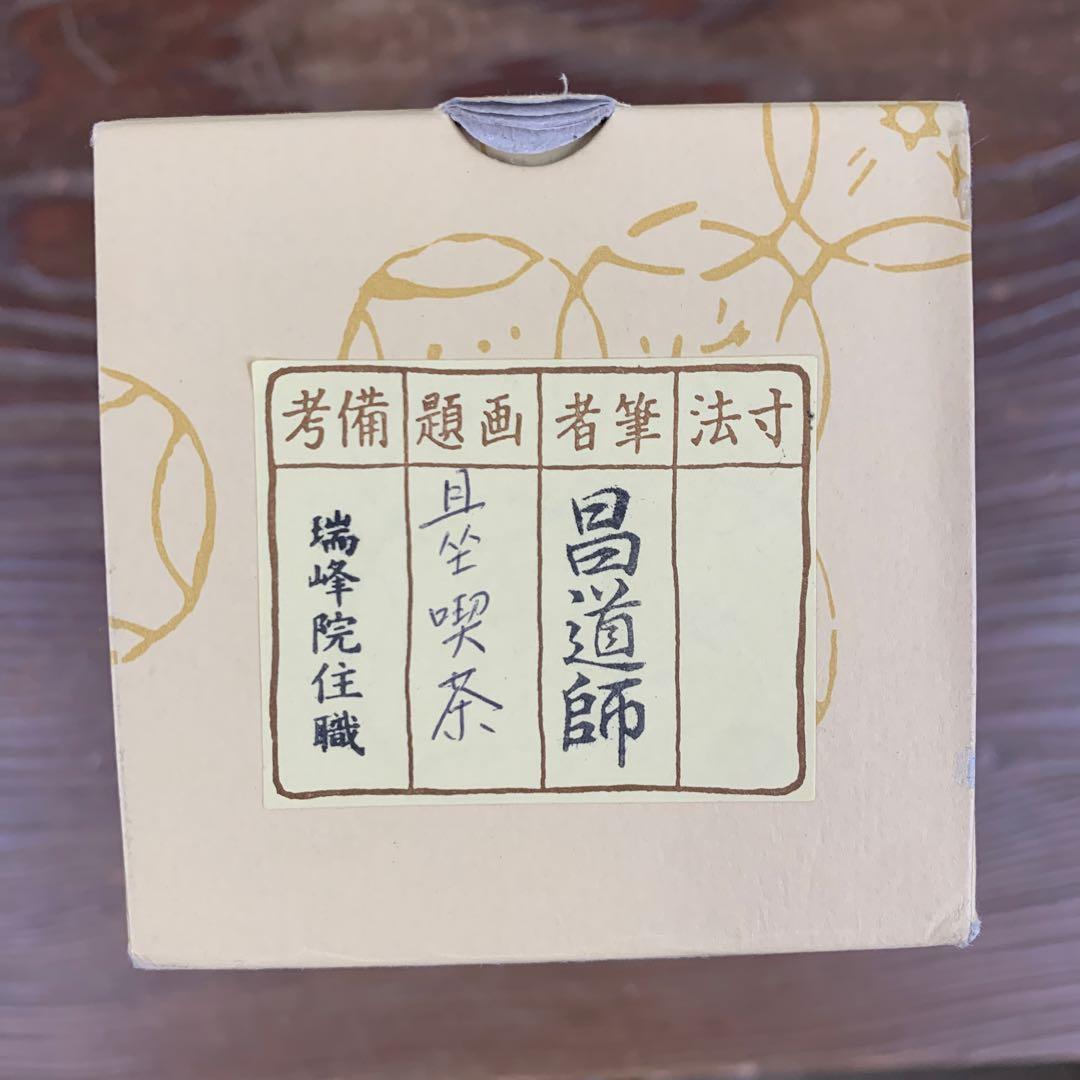 寸法
筆者
昌道師
画題
且坐喫茶
備考
瑞峰院住職